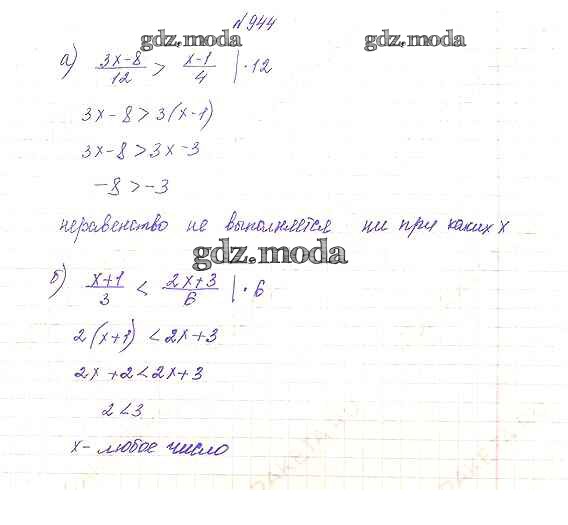 №944
gdz.moda gdz.moda
а) (3x-8)/12 > (x-1)/4 | · 12
3x - 8 > 3(x-1)
3x - 8 > 3x - 3
-8 > -3
неравенство не выполняется ни при каких x
gdz.moda
б) (x+1)/3 < (2x+3)/6 | · 6
2(x+1) < 2x+3
2x + 2 < 2x + 3
2 < 3
x - любое число